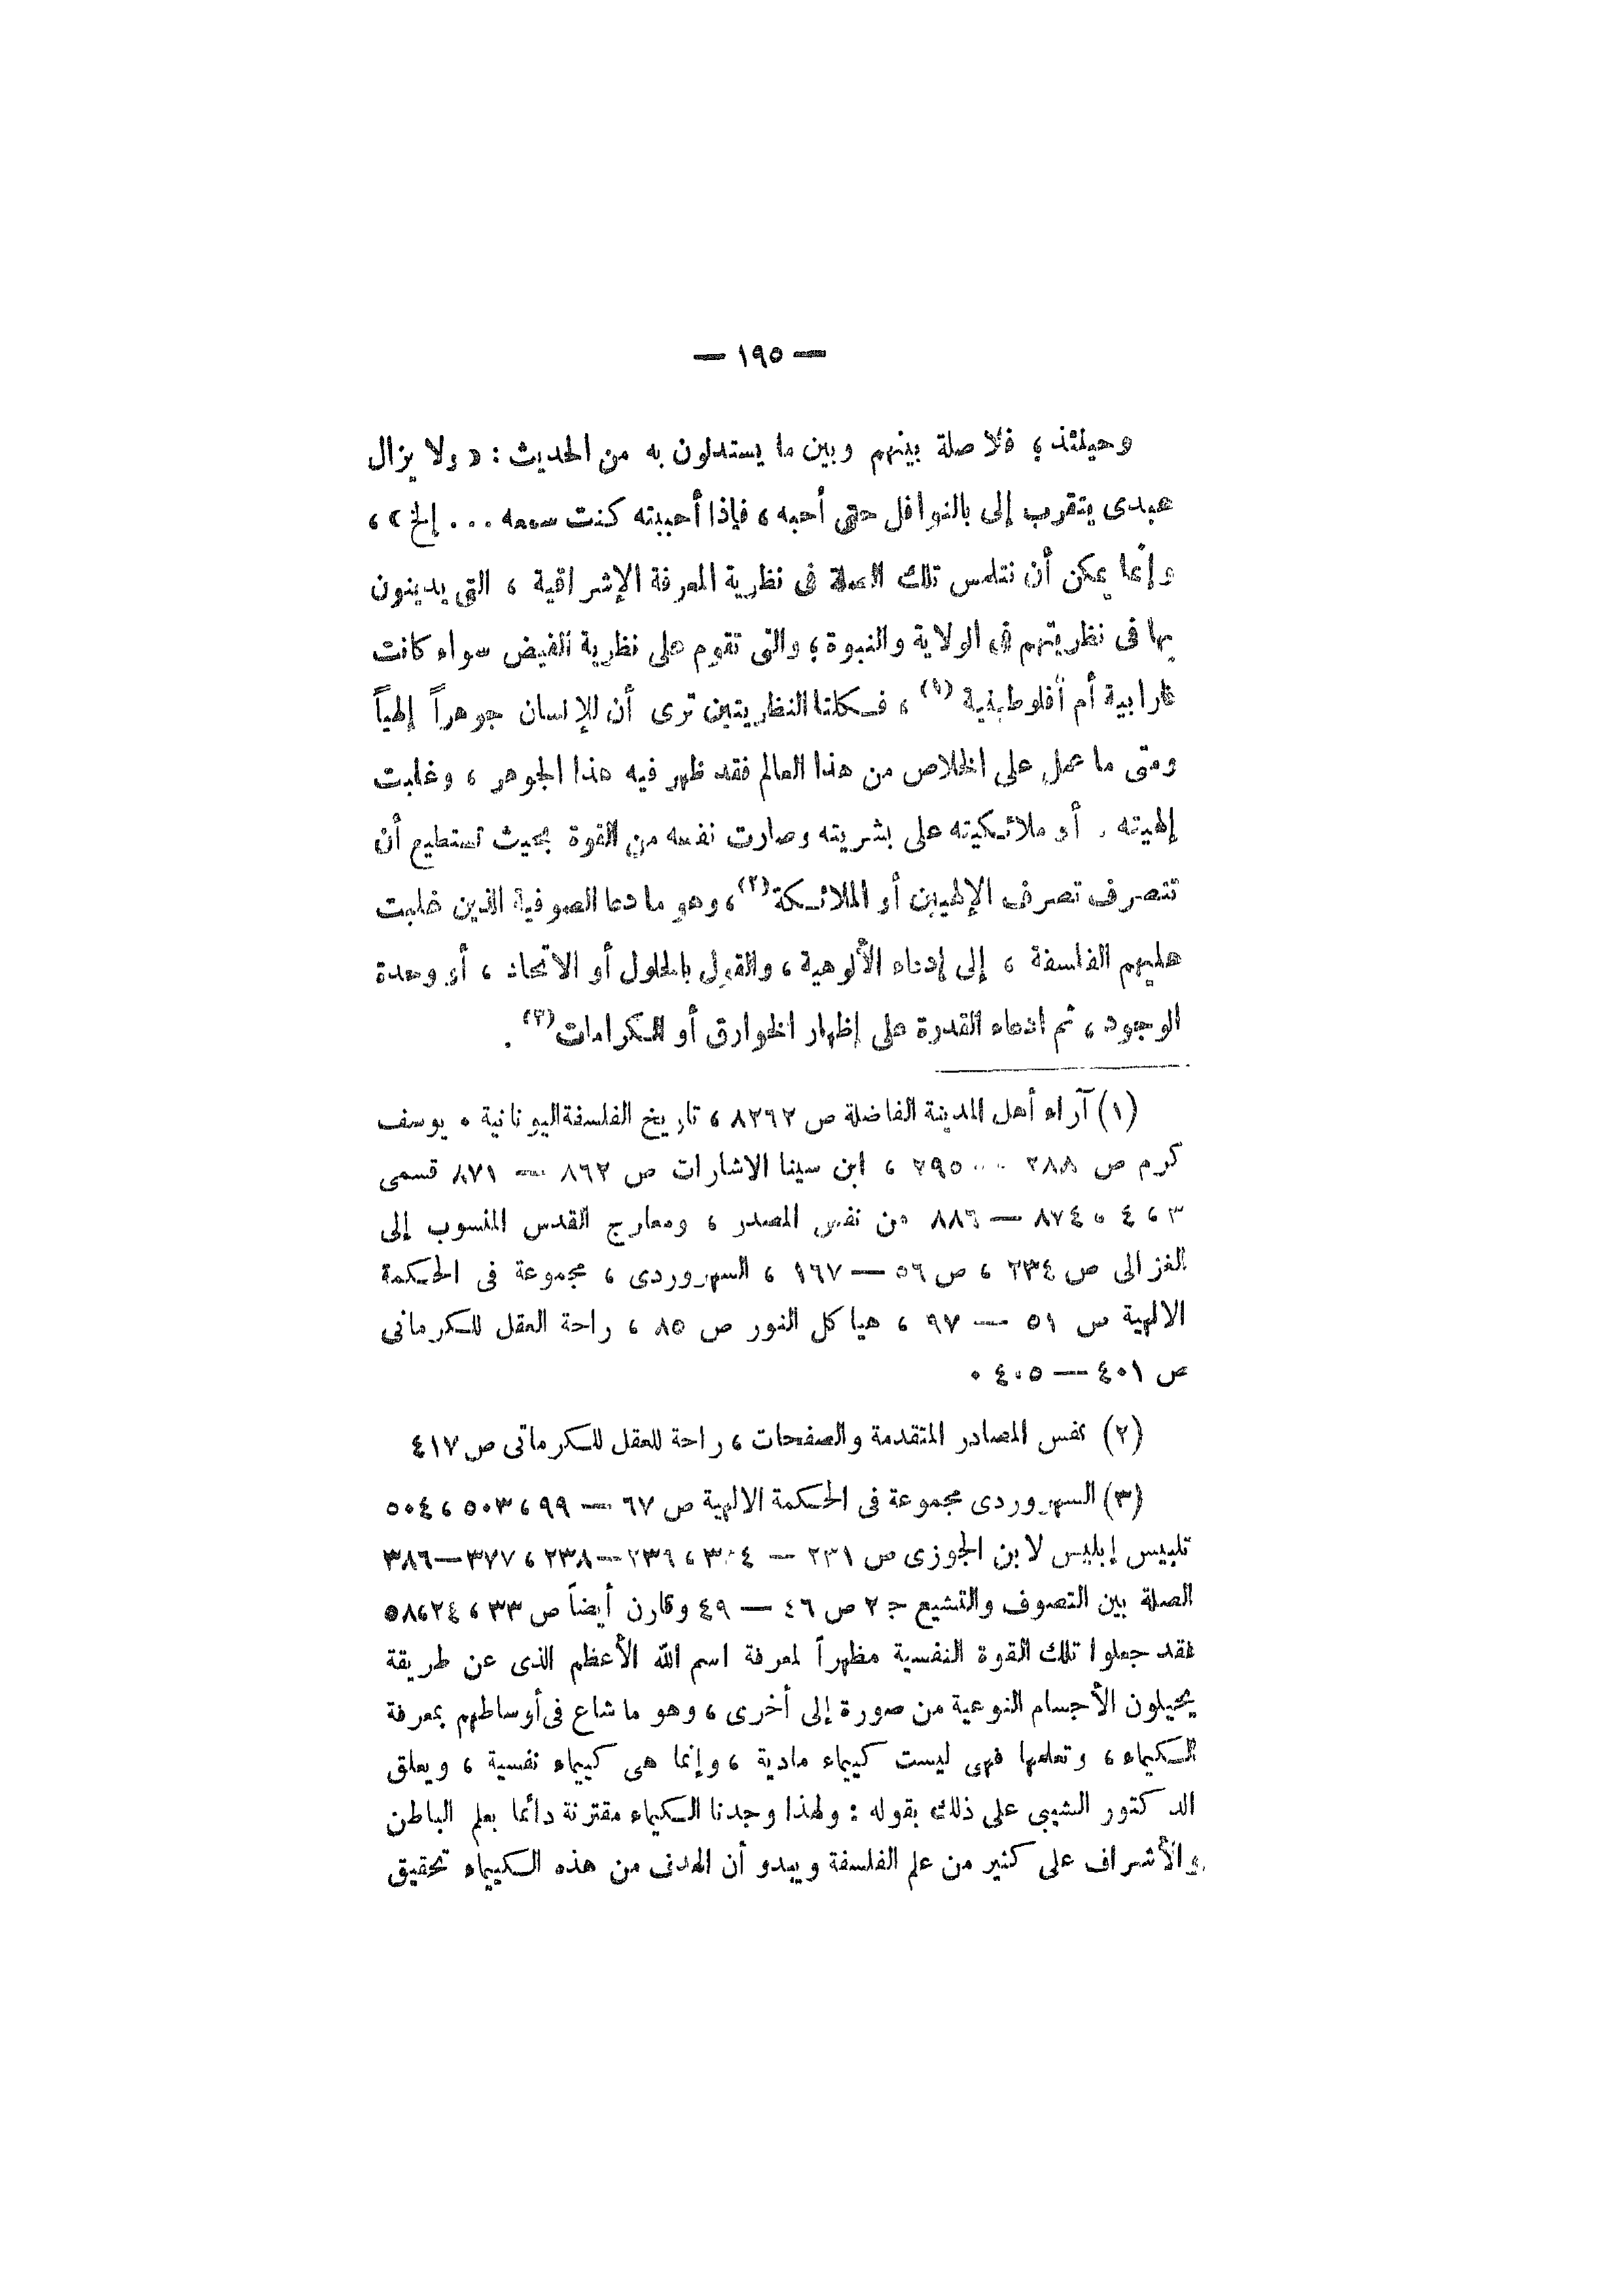 — ١٩٥ —
وحينئذ، فلا صلة بينهم وبين ما يستدلون به من الحديث: « ولا يزال
عبدى يتقرب إلى بالنوافل حتى أحبه، فإذا أحببته كنت سمعه ... إلخ »،
وإنما يمكن أن نتلمس تلك الصلة فى نظرية المعرفة الإشراقية ، التى يدينون
بها فى نظريتهم فى الولاية والنبوة، والتى تقوم على نظرية الفيض سواء كانت
فارابية أم أفلوطينية (١) ، فكلتا النظريتين ترى أن للإنسان جوهراً إلهياً
ومتى ما عمل على الخلاص من هذا العالم فقد ظهر فيه هذا الجوهر ، وغلبت
إلهيته . أو ملائكيته على بشريته وصارت نفسه من القوة بحيث تستطيع أن
تتصرف تصرف الإلهيين أو الملائكة (٢)، وهو ما دعا الصوفية الذين غلبت
عليهم الفلسفة ، إلى إدعاء الألوهية ، والقول بالحلول أو الاتحاد ، أو وحدة
الوجود ، ثم ادعاء القدرة على إظهار الخوارق أو الكرامات (٣) .
(١) آراء أهل المدينة الفاضلة ص ٨٢٦٢ ، تاريخ الفلسفة اليونانية . يوسف
كرم ص ٢٨٨ ... ٢٩٥ ، ابن سينا الاشارات ص ٨٦٢ — ٨٧١ قسمى
٣ ، ٤ ، ٨٧٤ — ٨٨٦ من نفس المصدر ، ومعارج القدس المنسوب إلى
الغزالى ص ٢٣٤ ، ص ٥٦ — ١٦٧ ، السهروردى ، مجموعة فى الحكمة
الالهية ص ٥١ — ٩٧ ، هياكل النور ص ٨٥ ، راحة العقل للكرمانى
ص ٤٠١ — ٤٠٥ .
(٢) نفس المصادر المتقدمة والصفحات ، راحة للعقل للكرماتى ص ٤١٧
(٣) السهروردى مجموعة فى الحكمة الالهية ص ٦٧ — ٩٩ ، ٥٠٣ ، ٥٠٤
تلبيس إبليس لابن الجوزى ص ٢٣١ — ، ٢٣٩—٢٣٨ ، ٣٧٧—٣٨٦
الصلة بين التصوف والتشيع ج ٢ ص ٤٦ — ٤٩ وقارن أيضاً ص ٣٣ ، ٥٨،٢٤
فقد جعلوا تلك القوة النفسية مظهراً لمعرفة اسم الله الأعظم الذى عن طريقة
يحيلون الأجسام النوعية من صورة إلى أخرى ، وهو ما شاع فى أوساطهم بمعرفة
الكيماء ، وتعلمها فهى ليست كيماء مادية ، وإنما هى كيماء نفسية ، ويعلق
الدكتور الشيبى على ذلك بقوله : ولهذا وجدنا الكيماء مقترنة دائما بعلم الباطن
والأشراف على كثير من علم الفلسفة ويبدو أن الهدف من هذه الكيماء تحقيق